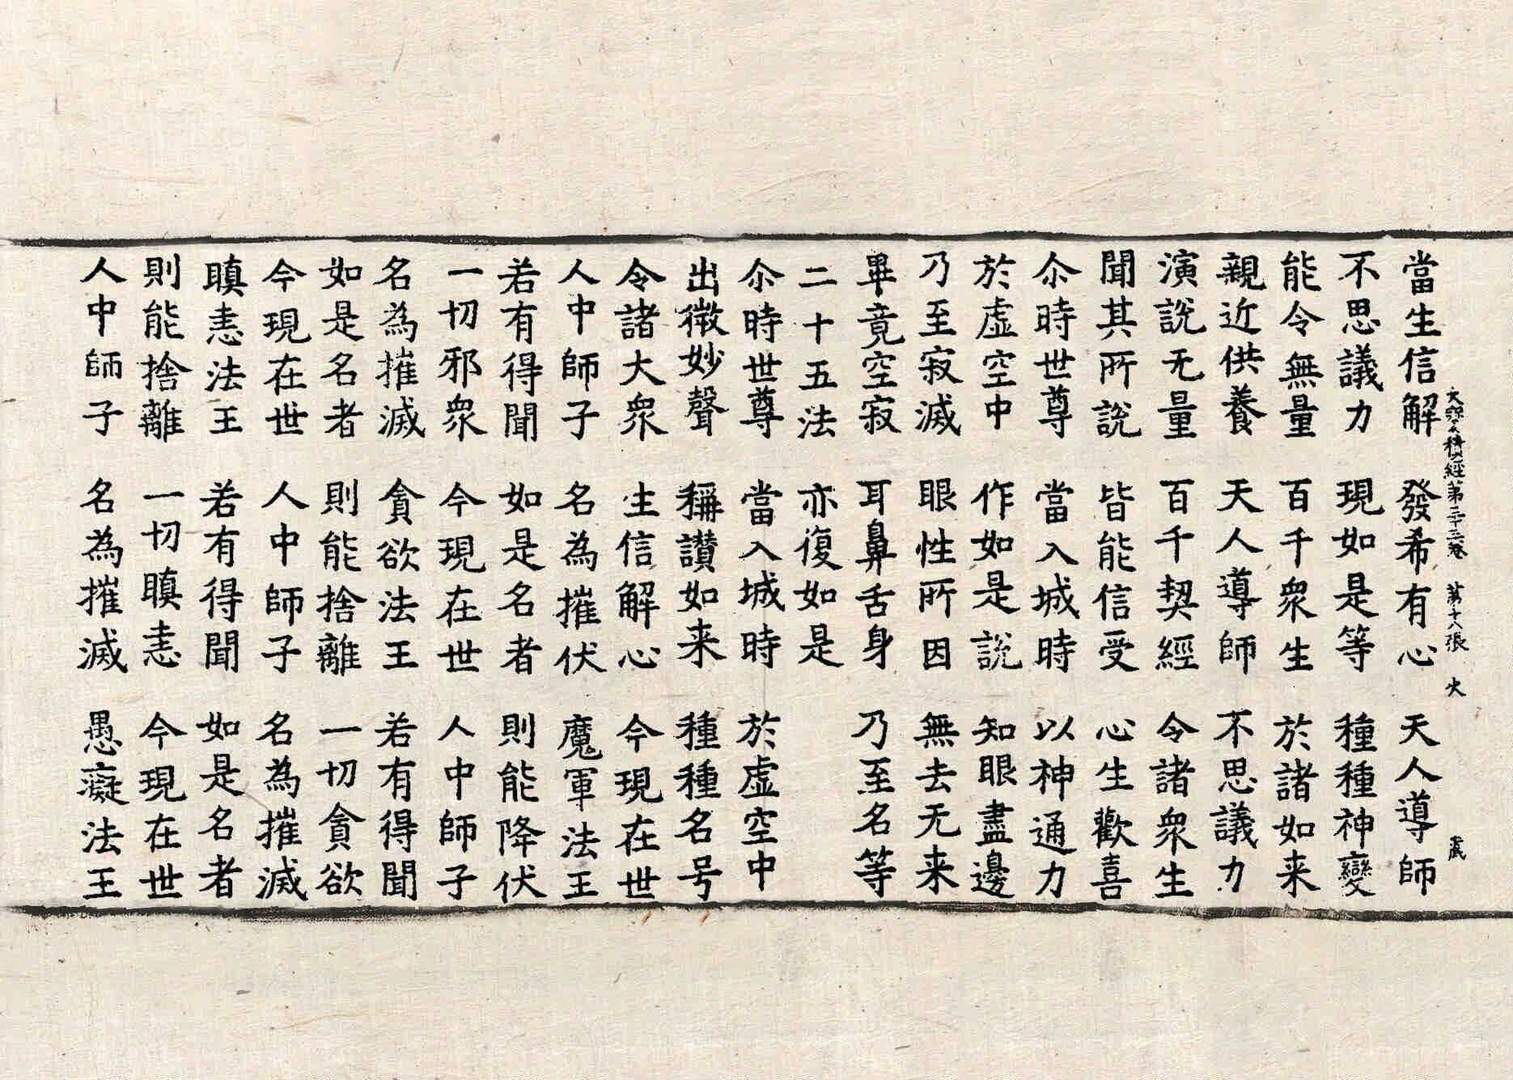 大寳積經第三十三卷 第十八張 火
當生信解 發希有心 天人導師
不思議力 現如是等 種種神變
能令無量 百千衆生 於諸如来
親近供養 天人導師 不思議力
演説无量 百千契經 令諸衆生
聞其所説 皆能信受 心生歡喜
尒時世尊 當入城時 以神通力
於虚空中 作如是説 知眼盡邊
乃至寂滅 眼性所因 無去无来
畢竟空寂 耳鼻舌身 乃至名等
二十五法 亦復如是
尒時世尊 當入城時 於虚空中
出微妙聲 稱讃如来 種種名号
令諸大衆 生信解心 今現在世
人中師子 名為摧伏 魔軍法王
若有得聞 如是名者 則能降伏
一切邪衆 今現在世 人中師子
名為摧滅 貪欲法王 若有得聞
如是名者 則能捨離 一切貪欲
今現在世 人中師子 名為摧滅
瞋恚法王 若有得聞 如是名者
則能捨離 一切瞋恚 今現在世
人中師子 名為摧滅 愚癡法王